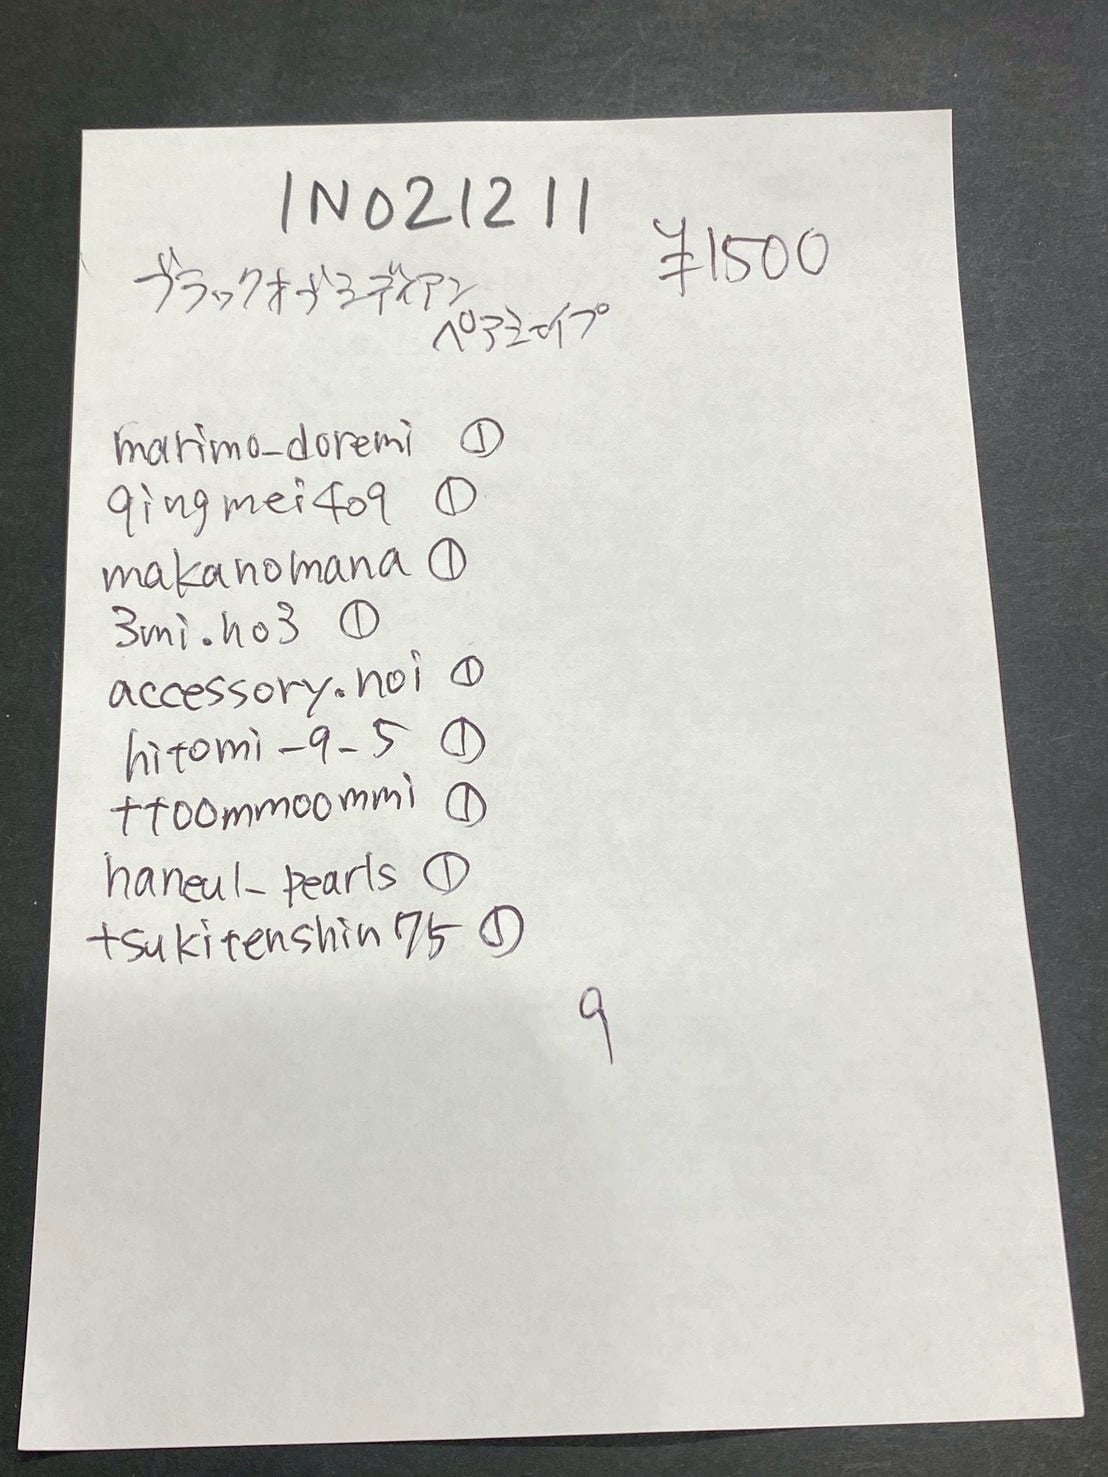 INO21211
¥1500
ブラックオブシディアン
ペアシェイプ
marimo_doremi ①
qingmei409 ①
makanomana ①
3mi.ho3 ①
accessory.noi ①
hitomi_9_5 ①
ttoommoommi ①
haneul_pearls ①
tsukitenshin75 ①
9